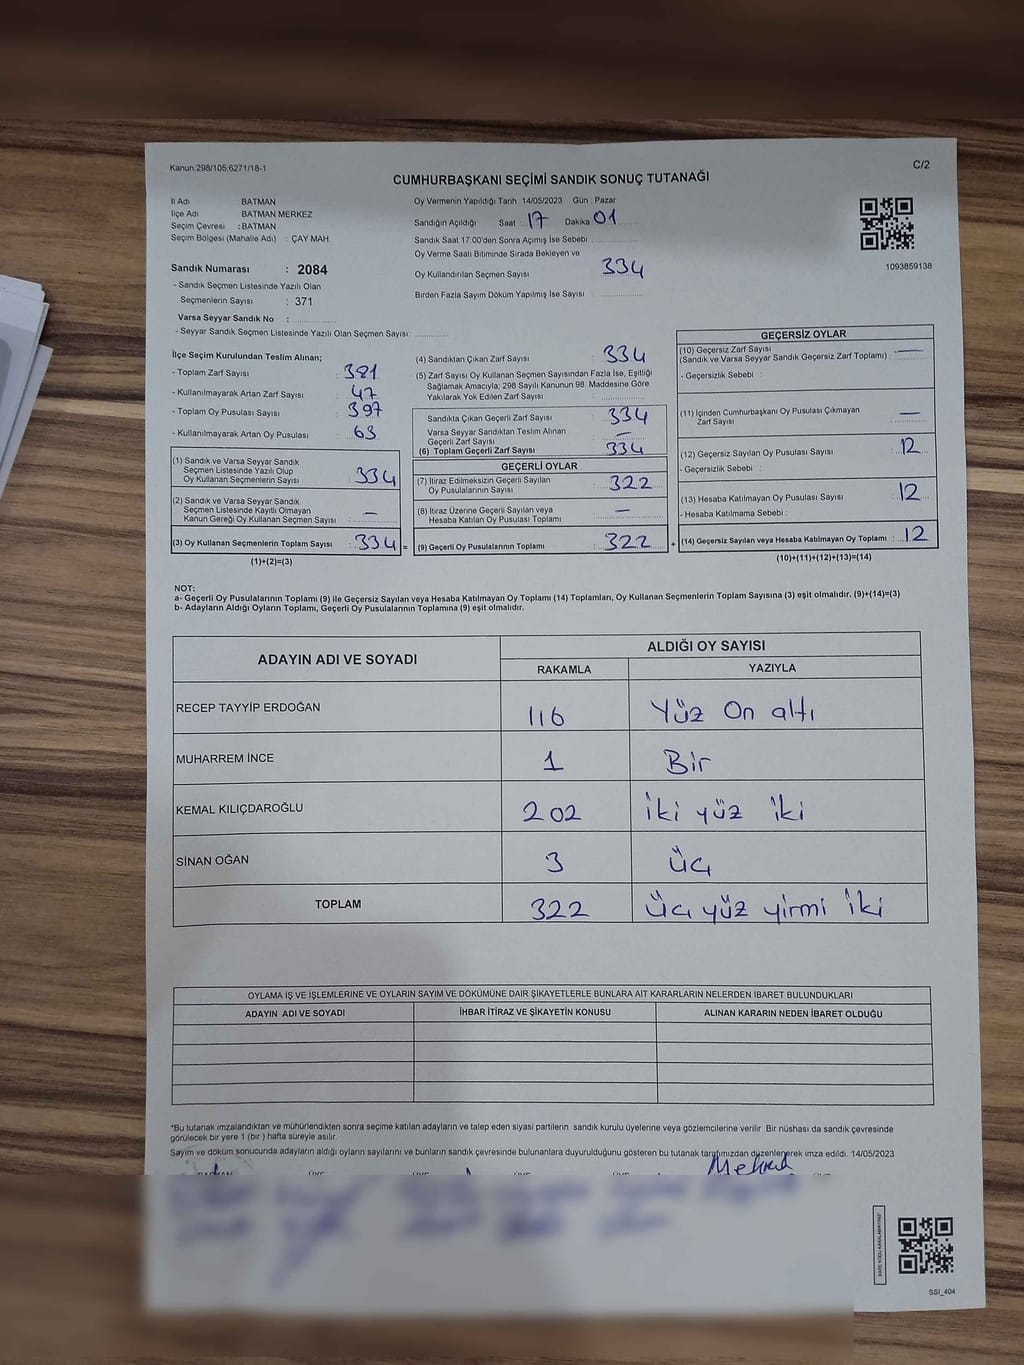 Kanun 298/105;6271/18-1
C/2
CUMHURBAŞKANI SEÇİMİ SANDIK SONUÇ TUTANAĞI
İl Adı BATMAN
İlçe Adı BATMAN MERKEZ
Seçim Çevresi :BATMAN
Seçim Bölgesi (Mahalle Adı) : ÇAY MAH.
Sandık Numarası : 2084
- Sandık Seçmen Listesinde Yazılı Olan
Seçmenlerin Sayısı : 371
Varsa Seyyar Sandık No :
- Seyyar Sandık Seçmen Listesinde Yazılı Olan Seçmen Sayısı:
Oy Vermenin Yapıldığı Tarih 14/05/2023 Gün : Pazar
Sandığın Açıldığı Saat : 17 Dakika 01
Sandık Saat 17:00'den Sonra Açımış İse Sebebi
Oy Verme Saati Bitiminde Sırada Bekleyen ve
Oy Kullandırılan Seçmen Sayısı 334
Birden Fazla Sayım Döküm Yapılmış İse Sayısı :
1093859138
İlçe Seçim Kurulundan Teslim Alınan;
- Toplam Zarf Sayısı : 381
- Kullanılmayarak Artan Zarf Sayısı : 47
- Toplam Oy Pusulası Sayısı : 397
- Kullanılmayarak Artan Oy Pusulası : 63
(1) Sandık ve Varsa Seyyar Sandık
Seçmen Listesinde Yazılı Olup
Oy Kullanan Seçmenlerin Sayısı : 334
(2) Sandık ve Varsa Seyyar Sandık
Seçmen Listesinde Kayıtlı Olmayan
Kanun Gereği Oy Kullanan Seçmen Sayısı : —
(3) Oy Kullanan Seçmenlerin Toplam Sayısı : 334 =
(1)+(2)=(3)
(4) Sandıktan Çıkan Zarf Sayısı : 334
(5) Zarf Sayısı Oy Kullanan Seçmen Sayısından Fazla İse, Eşitliği
Sağlamak Amacıyla; 298 Sayılı Kanunun 98. Maddesine Göre
Yakılarak Yok Edilen Zarf Sayısı :
Sandıkta Çıkan Geçerli Zarf Sayısı : 334
Varsa Seyyar Sandıktan Teslim Alınan
Geçerli Zarf Sayısı : —
(6) Toplam Geçerli Zarf Sayısı : 334
GEÇERLİ OYLAR
(7) İtiraz Edilmeksizin Geçerli Sayılan
Oy Pusulalarının Sayısı : 322
(8) İtiraz Üzerine Geçerli Sayılan veya
Hesaba Katılan Oy Pusulası Toplamı : —
(9) Geçerli Oy Pusulalarının Toplamı : 322 +
GEÇERSİZ OYLAR
(10) Geçersiz Zarf Sayısı
(Sandık ve Varsa Seyyar Sandık Geçersiz Zarf Toplamı) : —
- Geçersizlik Sebebi :
(11) İçinden Cumhurbaşkanı Oy Pusulası Çıkmayan
Zarf Sayısı : —
(12) Geçersiz Sayılan Oy Pusulası Sayısı : 12
- Geçersizlik Sebebi :
(13) Hesaba Katılmayan Oy Pusulası Sayısı : 12
- Hesaba Katılmama Sebebi :
(14) Geçersiz Sayılan veya Hesaba Katılmayan Oy Toplamı : 12
(10)+(11)+(12)+(13)=(14)
NOT:
a- Geçerli Oy Pusulalarının Toplamı (9) ile Geçersiz Sayılan veya Hesaba Katılmayan Oy Toplamı (14) Toplamları, Oy Kullanan Seçmenlerin Toplam Sayısına (3) eşit olmalıdır. (9)+(14)=(3)
b- Adayların Aldığı Oyların Toplamı, Geçerli Oy Pusulalarının Toplamına (9) eşit olmalıdır.
ADAYIN ADI VE SOYADI ALDIĞI OY SAYISI
RAKAMLA YAZIYLA
RECEP TAYYİP ERDOĞAN 116 Yüz On altı
MUHARREM İNCE 1 Bir
KEMAL KILIÇDAROĞLU 202 İki yüz iki
SİNAN OĞAN 3 Üç
TOPLAM 322 Üç yüz yirmi iki
OYLAMA İŞ VE İŞLEMLERİNE VE OYLARIN SAYIM VE DÖKÜMÜNE DAİR ŞİKAYETLERLE BUNLARA AİT KARARLARIN NELERDEN İBARET BULUNDUKLARI
ADAYIN ADI VE SOYADI İHBAR İTİRAZ VE ŞİKAYETİN KONUSU ALINAN KARARIN NEDEN İBARET OLDUĞU
*Bu tutanak imzalandıktan ve mühürlendikten sonra seçime katılan adayların ve talep eden siyasi partilerin sandık kurulu üyelerine veya gözlemcilerine verilir. Bir nüshası da sandık çevresinde
görülecek bir yere 1 (bir) hafta süreyle asılır.
Sayım ve döküm sonucunda adayların aldığı oyların sayılarını ve bunların sandık çevresinde bulunanlara duyurulduğunu gösteren bu tutanak tarafımızdan düzenlenerek imza edildi. 14/05/2023
SSI_404